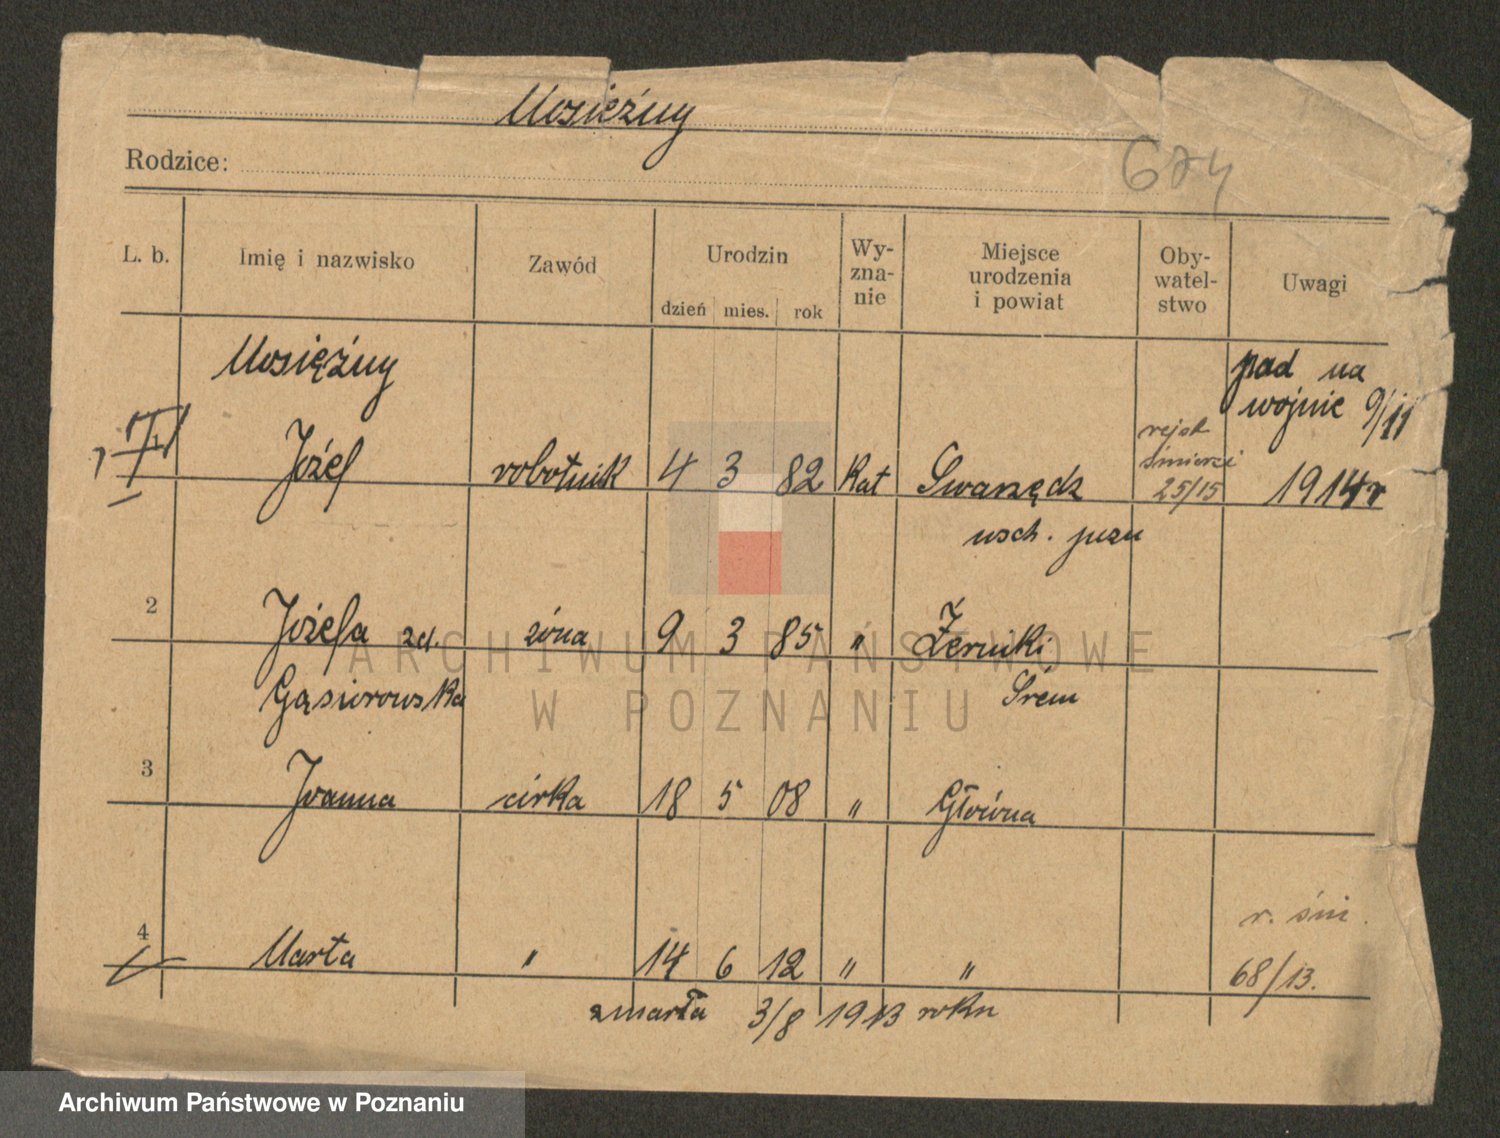 Mosiężny
Rodzice:
674
L. b. Imię i nazwisko Zawód Urodzin dzień mies. rok Wy-zna-nie Miejsce urodzenia i powiat Oby-watel-stwo Uwagi
Mosiężny pad na
wojnie 9/11
Józef robotnik 4 3 82 kat Swarzędz rejstr śmierci 25/15 1914 r
wsch. pozn
2 Józefa zd. żona 9 3 85 " Żerniki
Gąsiorowska Śrem
3 Joanna córka 18 5 08 " Główna
r. śmi.
4 Marta " 14 6 12 " " 68/13.
zmarła 3/8 1913 roku
ARCHIWUM PAŃSTWOWE
W POZNANIU
Archiwum Państwowe w Poznaniu